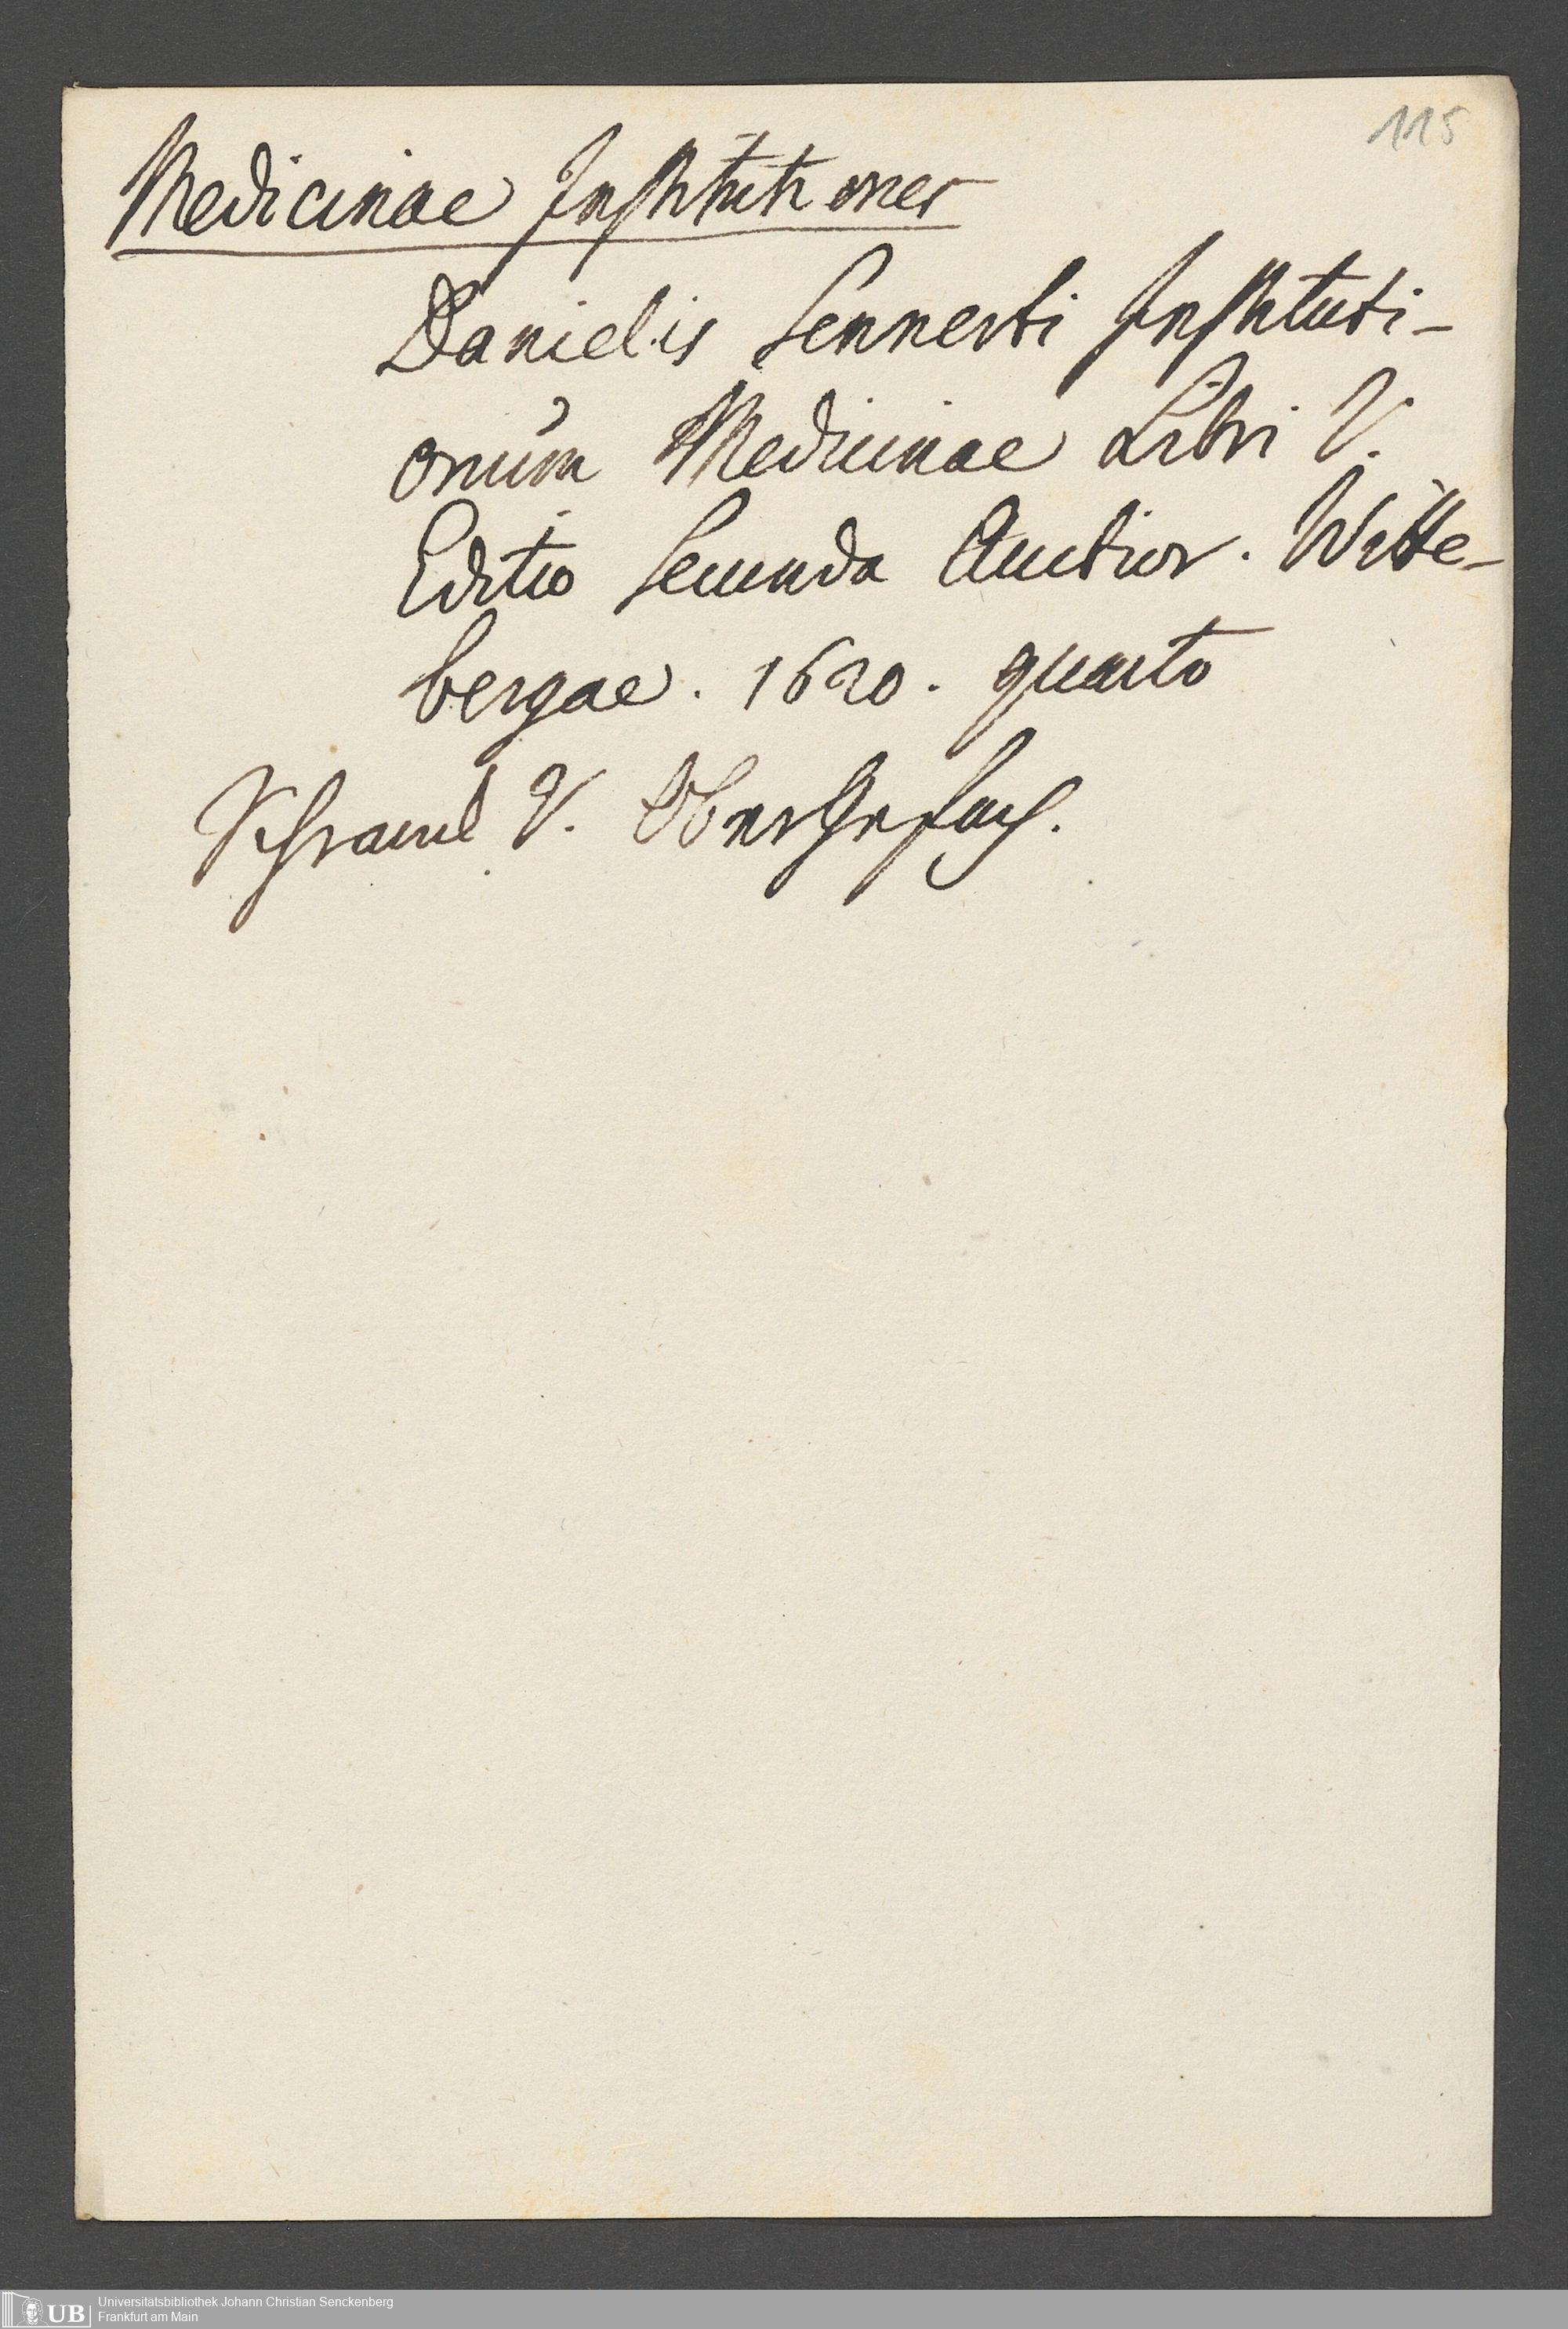 115
Medicinae Institutiones
Danielis Sennerti Instituti-
onum Medicinae Libri V.
Editio Secunda Auctior. Witte-
bergae. 1620. quarto
V. Obers
Universitätsbibliothek Johann Christian Senckenberg
Frankfurt am Main